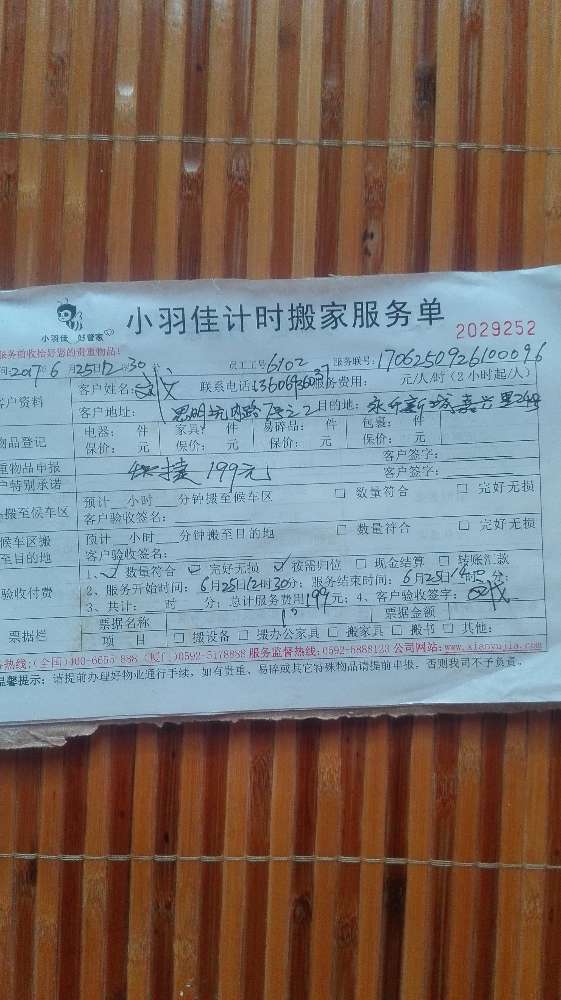 小羽佳 好管家
小羽佳计时搬家服务单
2029252
服务前收拾好您的贵重物品!
2017年6月25日12 30 员工工号6102 服务联号:1706250926100096
客户资料 客户姓名: 联系电话 服务费用: 元/人/时(2小时起/人)
客户地址: 思明坑内路 之2 目的地:
物品登记 电器: 件 家具: 件 易碎品: 件 包裹: 件
保价: 元 保价: 元 保价: 元 保价: 元
重物品申报 快捷199元 客户签字:
户特别承诺 客户签字:
搬至候车区 预计 小时 分钟搬至候车区 □ 数量符合 □ 完好无损
客户验收签名:
候车区搬至目的地 预计 小时 分钟搬至目的地 □ 数量符合 □ 完好无损
客户验收签名:
验收付费 1、 数量符合 完好无损 按需归位 □ 现金结算 □ 转账汇款
2、服务开始时间: 6月25日12时30分; 服务结束时间: 6月25日14时 分;
3、共计: 时 分; 总计服务费用199元; 4、客户验收签字:
票据栏 票据名称 票据金额
项 目 □ 搬设备 □ 搬办公家具 □ 搬家具 □ 搬书 □ 其他:
务热线:(全国)400-6655-888 (厦门)0592-5178888 服务监督热线:0592-5888123 公司网站:www.xiaoyujia.com
温馨提示: 请提前办理好物业通行手续,如有贵重、易碎或其它特殊物品请提前申报,否则我司不予负责。